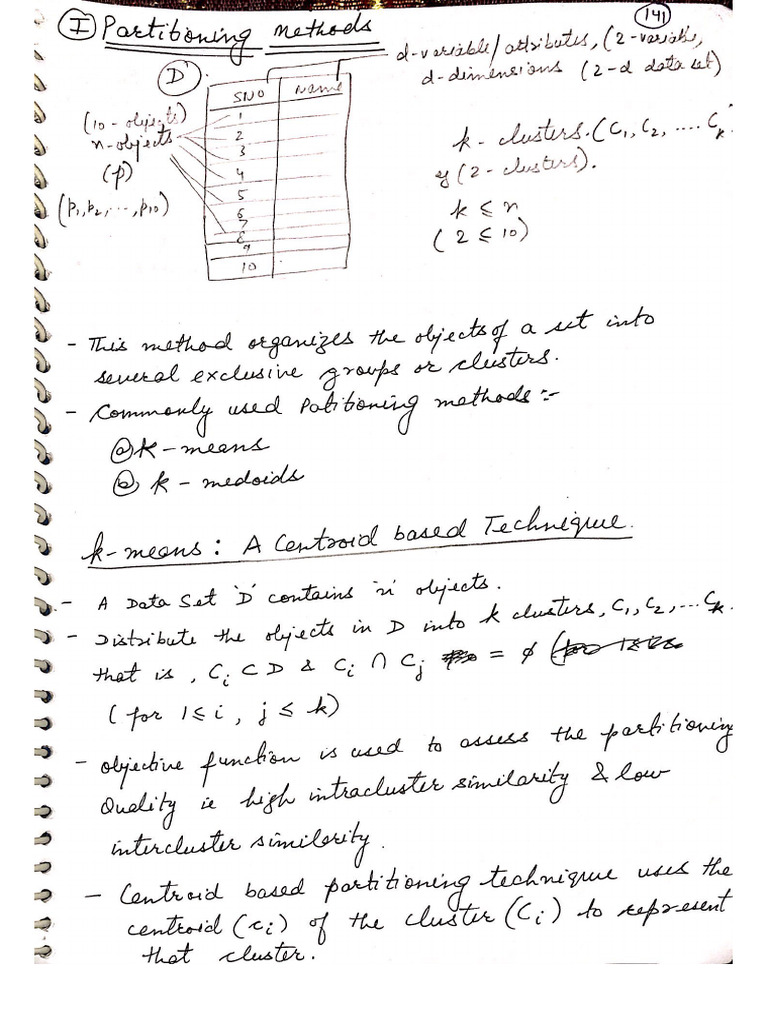 141
I Partitioning Methods
d-variable/attributes, (2-variable,
d-dimensions (2-d data set)
D
SNO Name
(10-objects)
n-objects
(p)
(p1, p2, ..., p10)
1
2
3
4
5
6
7
8
9
10
k-clusters. (C1, C2, .... Ck
(2-clusters).
k ≤ n
(2 ≤ 10)
- This method organizes the objects of a set into
several exclusive groups or clusters.
- Commonly used Patitioning methods:-
ⓐ k-means
k-medoids
k-means: A Centroid based Technique.
- A Data Set 'D' contains 'n' objects.
- Distribute the objects in D into k clusters, C1, C2, ... Ck.
that is, Ci ⊂ D & Ci ∩ Cj = ϕ
(for 1 ≤ i, j ≤ k)
- objective function is used to assess the partitioning
Quality ie high intracluster similarity & low
intercluster similarity.
- Centroid based partitioning technique uses the
centroid (ci) of the cluster (Ci) to represent
that cluster.